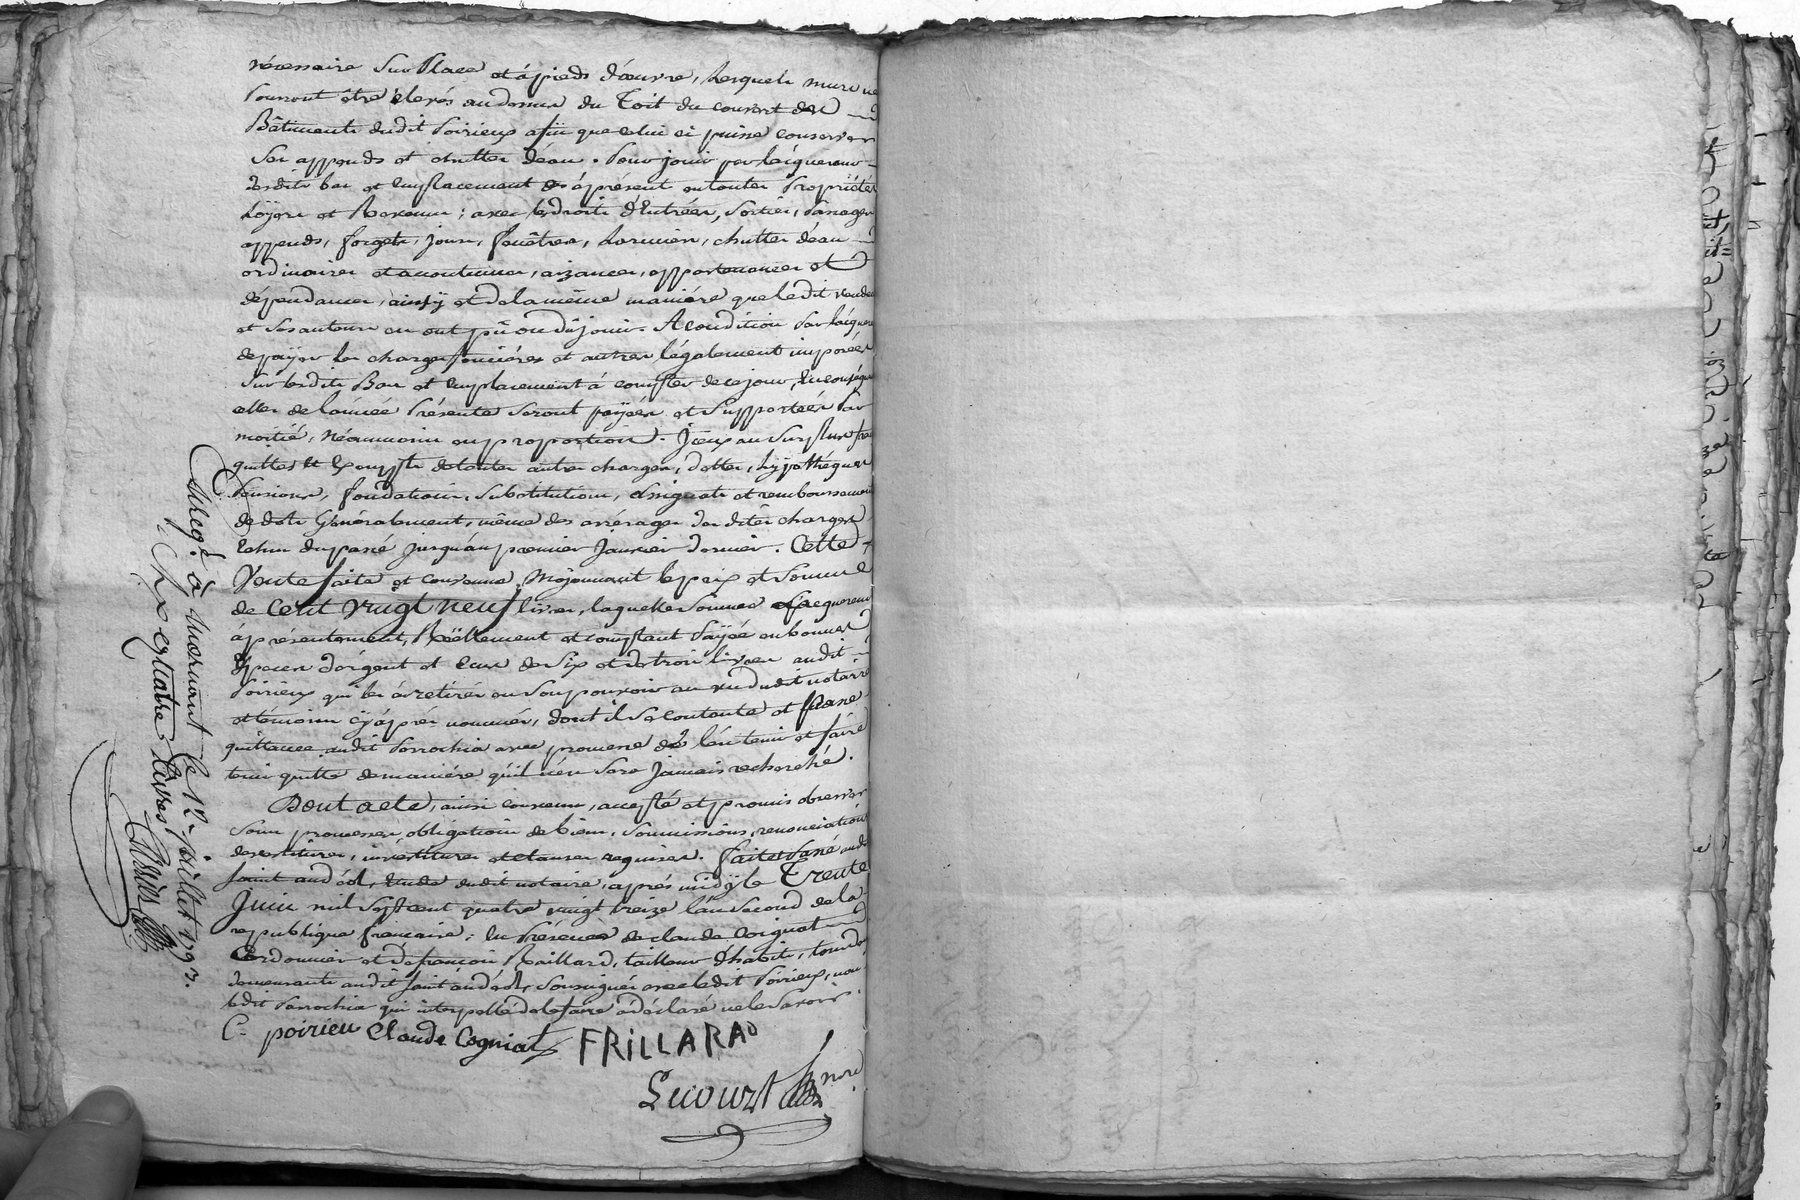 nécessaire sur Place et à pieds d'œuvre, lesquels murs ne
Pourront être élevés au dessus du Toit du couvert des
Bâtiments dudit Poirieux afin que celui ci puisse conserver
ses appends et chuttes d'eau. Pour jouir par l'acquéreur
desdits bas et Emplacement dès àprésent en toutes Propriétés
Loÿers et Revenus ; avec les droits d'Entrées, Sorties, Passages
appends, forgets, jours, fenêtres, Larmiers, chuttes d'eau
ordinaires et accoutumés, aizances, appartenances et
dépendances, ainsy et de la même manière que ledit vendeur
et ses auteurs en ont pû ou dû jouir. A condition Par l'acquéreur
de païer les charges foncières et autres légalement imposées
sur lesdits Bas et Emplacement à compter de ce jour, En conséquence
celles de l'année Présente seront païées et Supportées Par
moitié, néanmoins en proportion. Iceux au Surplus francs
quittes et Exempts de toutes autres charges, dettes, hÿpothèques
Pensions, fondations, substitutions, assignats et remboursement
de dots Généralement, même des arrérages desdites charges
échus du passé jusqu'au premier Janvier dernier. Cette
Vente faite et convenue, Moÿennant le prix et Somme
de Cent vingt neuf livres, laquelle Somme l'acquéreur
à présentement, Réellement et comptant Païée en bonnes
Espèces d'argent et Ecus de Six et de trois livres audit
Poirieux qui les a retirés en Son pouvoir au vu dudit notaire
et témoins cÿ après nommés, dont il se contente et passe
quittance audit Perrochia avec promesse de l'en tenir et faire
tenir quitte de manière qu'il n'en sera Jamais recherché.
Dont acte, ainsi convenu, accepté et promis observer
sous promesses, obligations de biens, soumissions, renonciations
devestitures, investitures et clauses requises. fait et Passé audit
Saint andéol, Etude dudit notaire, après midÿ le Trente
Juin mil sept cent quatre vingt treize l'an second de la
république française ; En Présence de claude Cogniat
Cordonnier et de françois Raillard, tailleur d'habits, tous deux
demeurants audit Saint andéol, Soussignés avec ledit Poirieux, non
ledit Perrochia qui interpellé de le faire a déclaré ne le savoir.
C. poirieu Claude Cogniat FRILLARAD
Lecourt nore
Enregé à mornant le 12 juillet 1793.
Rx quatre livres